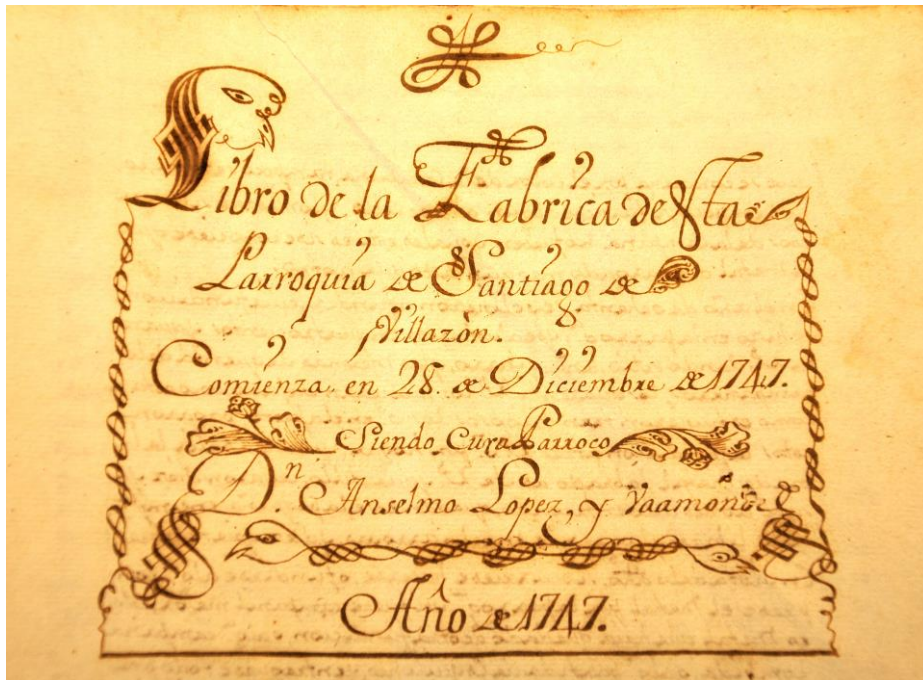 Libro de la Fabrica desta
Parroquia de Santiago de
Villazòn.
Comienza en 28. de Diciembre de 1747.
Siendo Cura Parroco
Dn. Anselmo Lopez, y Vaamonde
Año de 1747.